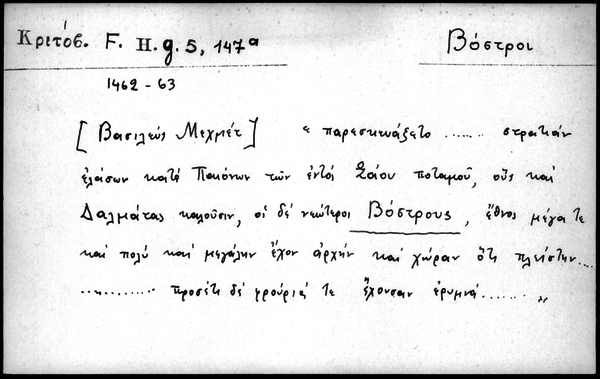 Κριτόβ. F. H. g. 5, 147ᵃ
Βόστροι
1462 - 63
[Βασιλεύς Μεχμέτ] « παρεσκευάζετο ....... στρατιάν
ἐλάσων κατά Παιόνων τῶν ἐντός Σάου ποταμοῦ, οὕς καί
Δαλμάτας καλοῦσιν, οἱ δέ νεώτεροι Βόστρους, ἔθνος μέγα τε
καί πολύ καί μεγάλην ἔχον ἀρχήν καί χώραν ὅτι πλείστην....
............ προσέτι δέ φρούριά τε ἔχουσαν ἐρυμνά....... »